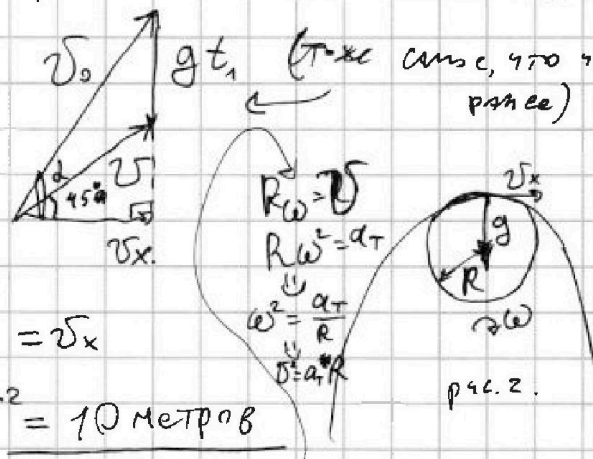 v₀ g t₁ (То же самое, что и
ранее)
α
45° v
vₓ
Rω = v
Rω² = a_T
⇓
ω² = a_T / R
⇓
v² = a_T R
vₓ
g
R
ω
рис. 2.
= vₓ
² = 10 метров